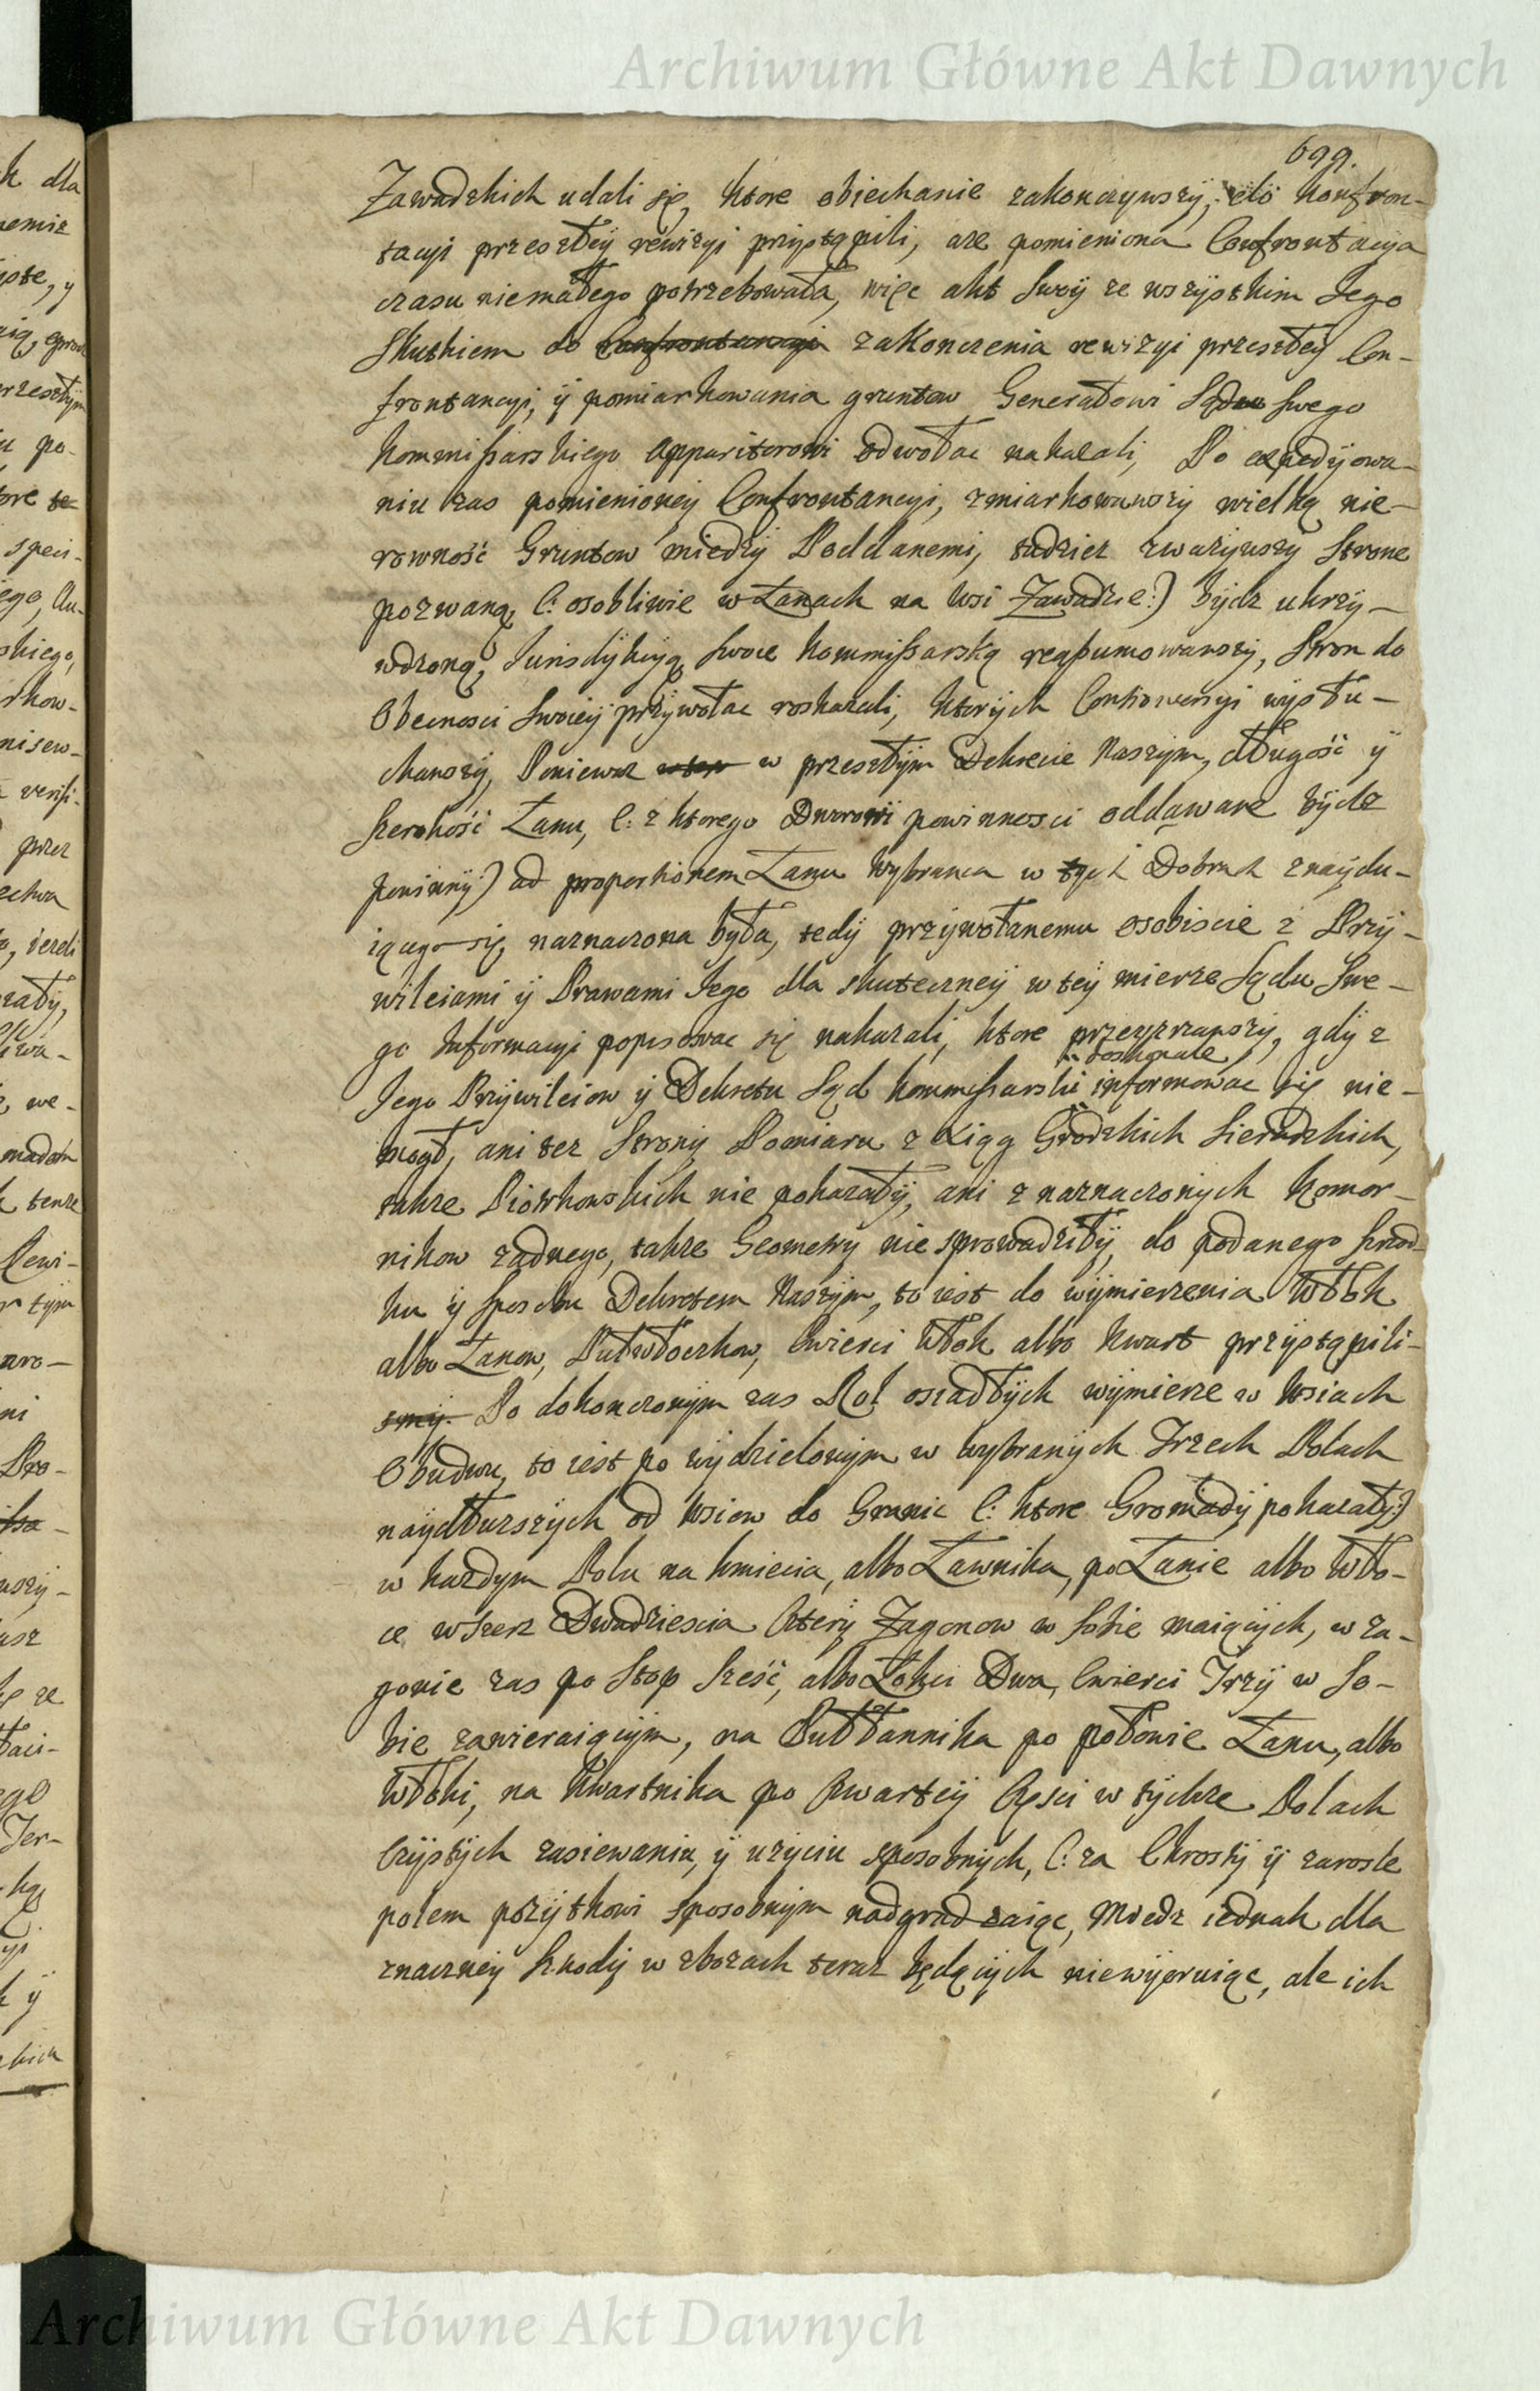 Archiwum Główne Akt Dawnych
699.
Zawadzkich udali się, ktore obiechanie zakonczywszÿ, do konfron-
tacyi przeszłeÿ rewizyi przÿstąpili, aże pomieniona Confrontacya
czasu niemałego potrzebowała, więc akt Swoÿ ze wszÿstkim Jego
Skutkiem do Confrontancyi zakonczenia rewizyi przeszłeÿ Con-
frontancyi, ÿ pomiarkowania gruntow Generałowi Sądu Swego
Kommissarskiego Apparitorowi odwołac nakazali, Po expedÿowa-
niu zas pomienioneÿ Confrontancyi, zmiarkowawszÿ wielką nie-
rowność Gruntow miedzÿ Poddanemi, tudziez zwazÿwszÿ Strone
pozwaną, (: osobliwie w Łanach na Wsi Zawadzie :) bÿdz ukrzÿ-
wdzoną, Jurisdÿkcÿą Swoie Kommissarską reassumowawszÿ, Stron do
Obecnosci Swoieÿ przÿwołac roskazali, ktorÿch Controwersyi wÿsłu-
chawszÿ, Poniewaz w przeszłÿm Dekrecie Naszÿm, długość ÿ
Szerokość Łanu, (: z ktorego Dworowi powinnosci oddawane bÿdz
powinnÿ :) ad proportionem Łanu Wybranca w tÿch Dobrach znaÿdu-
iącego się, naznaczona była, tedÿ przÿwołanemu osobiscie z Przÿ-
wileiami ÿ Prawami Jego dla skuteczneÿ w teÿ mierze Sądu Swe-
go Informacyi popisowac się nakazali, ktore przeÿzrzawszÿ, gdÿ z
doskonale
Jego Przÿwileiow ÿ Dekretu Sąd Kommissarski informowac się nie-
mogł, ani tez Stronÿ Pomiaru z Xiąg Grodzkich Sieradzkich,
takze Piotrkowskich nie pokazałÿ, ani z naznaczonÿch Komor-
nikow zadnego, takze Geometry nie sprowadziłÿ, do podanego Srzod-
ku ÿ Sposobu Dekretem Naszÿm, to iest do wÿmierzenia Włok
albo Łanow, Pułwłoczkow, Cwierci Włok albo Kwart przÿstąpili-
smÿ. Po dokonczonÿm zas Rol osiadłÿch wÿmierze w Wsiach
Obudwu, to iest po wÿdzielonÿm w wybranÿch Trzech Polach
naÿdłuzszÿch od Wsiow do Granic (: ktore Gromadÿ pokazałÿ :)
w kazdym Polu na kmiecia, albo Ławnika, po Łanie albo Wło-
ce wszerz Dwadziescia Czterÿ Zagonow w Sobie maiącÿch, w za-
gonie zas po Stop Sześć, albo Łokci Dwa, Cwierci Trzÿ w So-
bie zawieraiącÿm, na Półłannika po połowie Łanu, albo
Włoki, na Kwartnika po Czwarteÿ Częsci w tÿchze Polach
Czÿstÿch zasiewaniu, ÿ uzÿciu sposobnÿch, (: za Chrostÿ ÿ zarosle
polem pozÿtkowi sposobnÿm nadgradzaiąc, Miedz iednak dla
znaczneÿ Szkodÿ w zbozach teraz będącÿch niewÿoruiąc, ale ich
Archiwum Główne Akt Dawnych